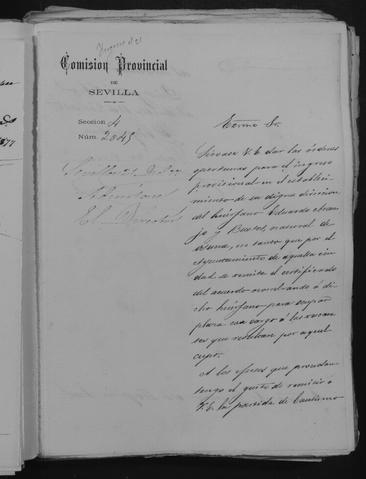 Comision Provincial
DE
SEVILLA
Sección 4
Núm. 2845
Excmo Sr.
Sírvase V.E. dar las órdenes
oportunas para el ingreso
provisional en el estableci-
miento de su digna direccion
del huérfano Eduardo
y Bustos, natural de
Osuna, en tanto que por el
Ayuntamiento de aquella ciu-
dad se remite el certificado
del acuerdo nombrando á di-
cho huérfano para ocupar
plaza con cargo á las vacan-
tes que resultan por aquel
cupo.
A los efectos que procedan
tengo el gusto de remitir á
V.E. la partida de bautismo
El Director